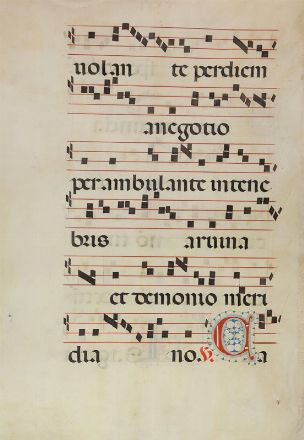 uolan te perdiem
anegotio
perambulante intene
bris aruina
et demonio meri
diano. V. Ca